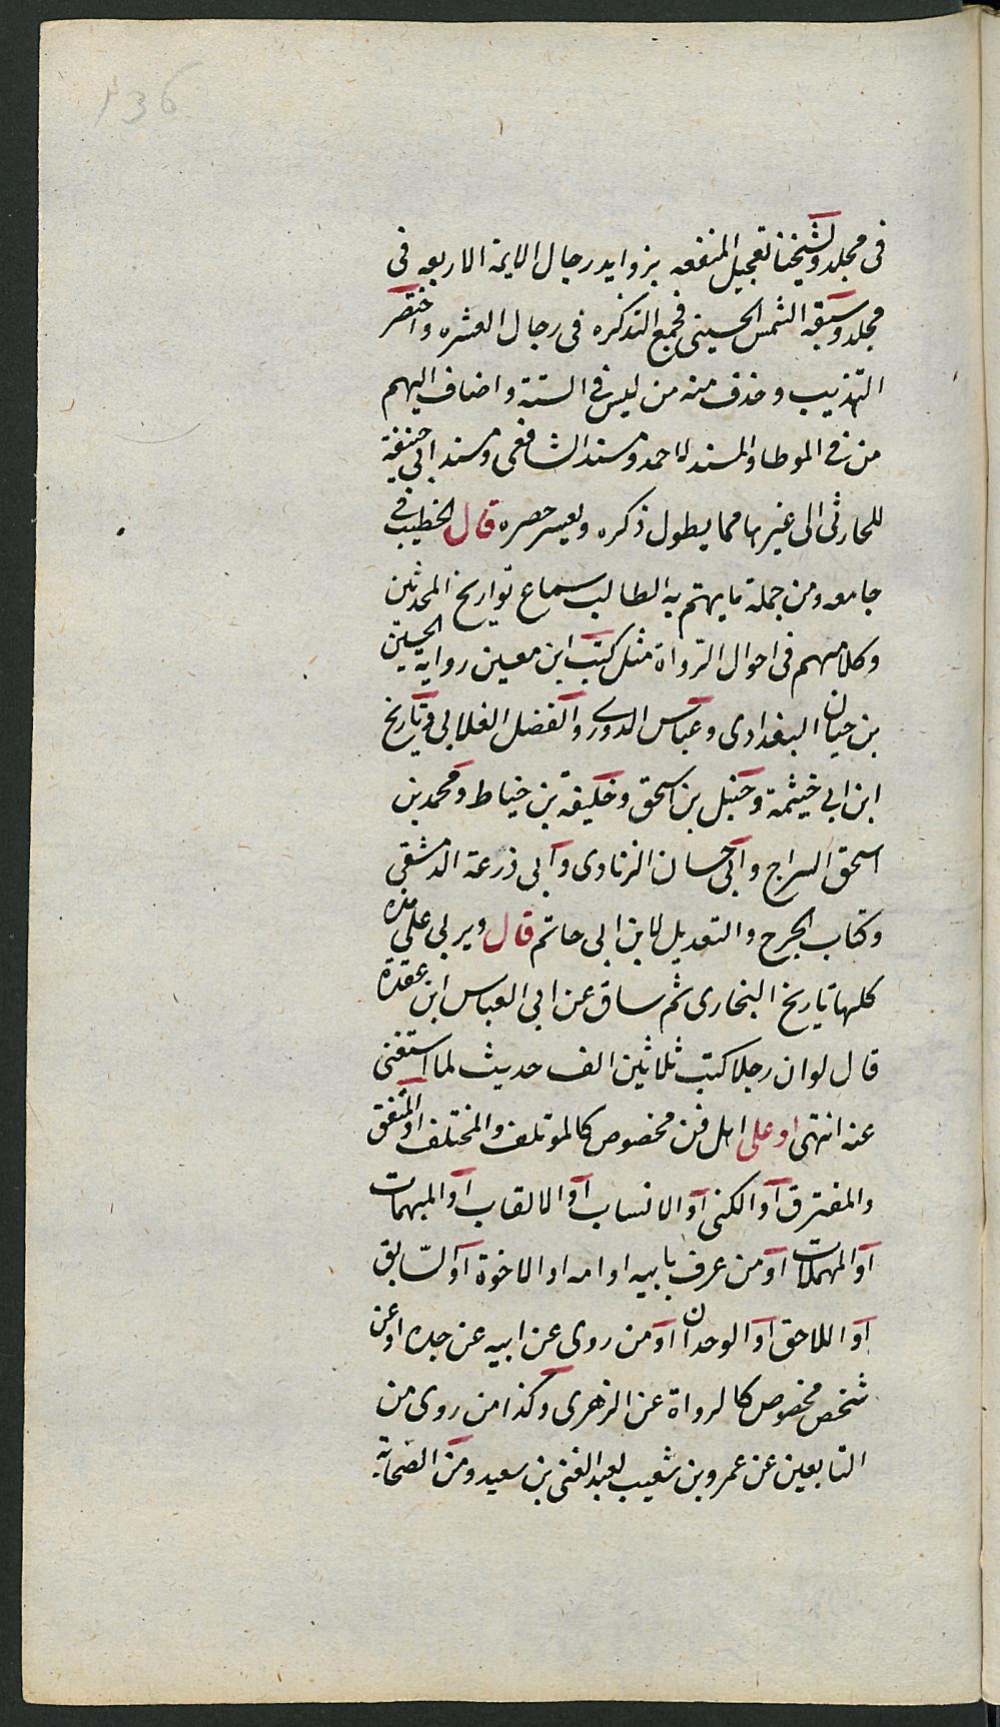 136
فى مجلد ولشيخنا تعجيل المنفعه بزوايد رجال الايمة الاربعه فى
مجلد وسبقه الشمس الحسينى فجمع التذكره فى رجال العشره واختصر
التهذيب وحذف منه من ليس فى الستة واضاف اليهم
من فى الموطا والمسند لاحمد ومسند الشافعى ومسند ابى حنيفة
للحارثى الى غيرها مما يطول ذكره ويعسر حصره قال الخطيب فى
جامعه ومن جملة ما يهتم به الطالب سماع تواريخ المحدثين
وكلامهم فى احوال الرواة مثل كتب ابن معين رواية الحسين
بن حبان البغدادى وعباس الدورى والمفضل الغلابى وتاريخ
ابن ابى خيثمة وحنبل بن اسحق وخليفة بن خياط ومحمد بن
اسحق السراج وابى حسان الزنادى وابى زرعة الدمشقى
وكتاب الجرح والتعديل لابن ابى حاتم قال ويربى على هذه
كلها تاريخ البخارى ثم ساق عن ابى العباس ابن عقدة
قال لو ان رجلا كتب ثلاثين الف حديث لما استغنى
عنه انتهى او على اهل فن مخصوص كالموتلف والمختلف او المتفق
والمفترق او الكنى او الانساب او الالقاب او المبهمات
او المهملات او من عرف بابيه او امه او الاخوة او السابق
او اللاحق او الوحدان او من روى عن ابيه عن جده او عن
شخص مخصوص كالرواة عن الزهرى وكذا من روى من
التابعين عن عمرو بن شعيب لعبد الغنى بن سعيد ومن الصحابة